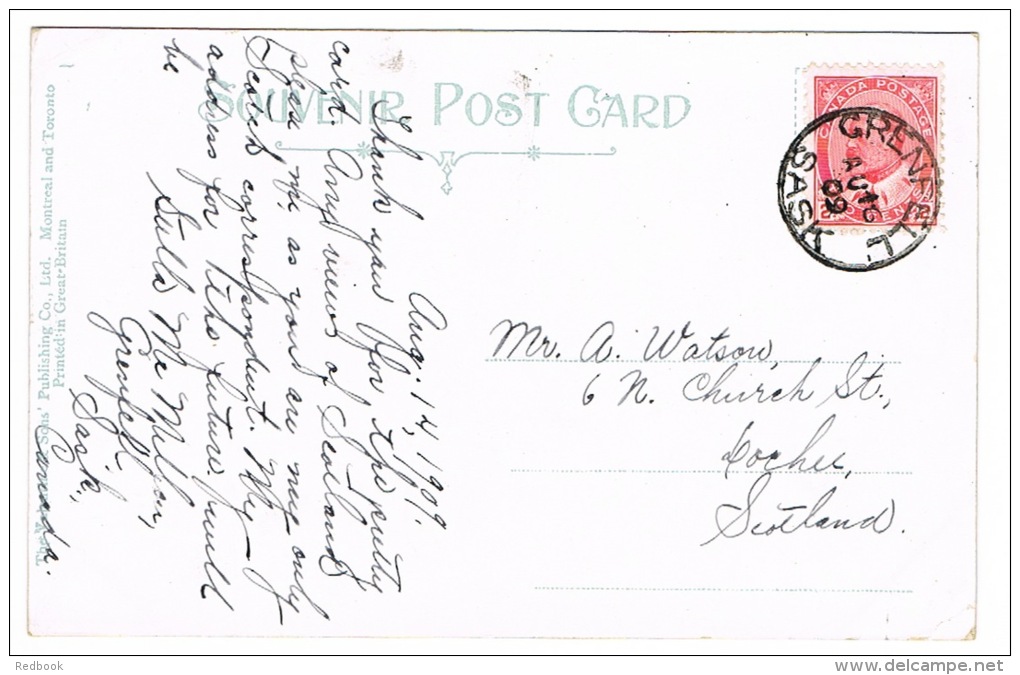 SOUVENIR POST CARD
CANADA POSTAGE
GRENFELL
AU 16
09
SASK
Aug. 14, 1909.
Thank you for the pretty
card. Any views of Scotland
please me as yours are my only
Scotch correspondent. My
address for the future would
be
Stella Mc
Grenfell
Sask.,
Canada.
Mr. A. Watson,
6 N. Church St.,
Lochee,
Scotland.
Sons' Publishing Co., Ltd. Montreal and Toronto
Printed in Great Britain
Redbook
delcampe.net